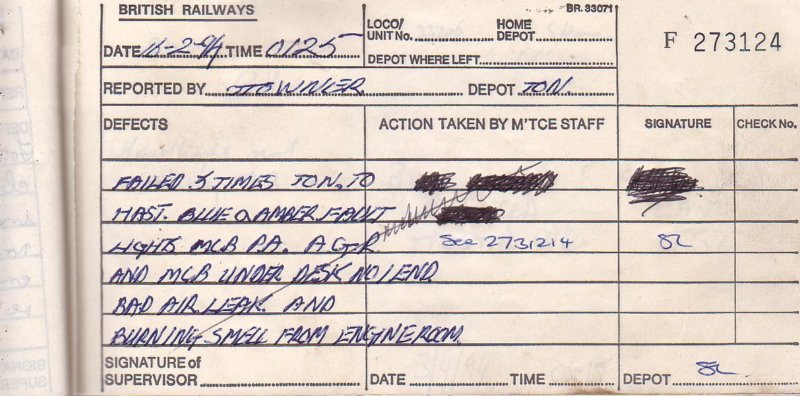 BRITISH RAILWAYS
BR. 33071
LOCO/ UNIT No. HOME DEPOT
DATE TIME 0125
DEPOT WHERE LEFT
F 273124
REPORTED BY DEPOT TON.
DEFECTS ACTION TAKEN BY M'TCE STAFF SIGNATURE CHECK No.
FAILED 3 TIMES TON. TO
MAST. BLUE & AMBER FAULT
LIGHTS MCB P.A. A G R See 2731214 SL
AND MCB UNDER DESK NO1 END
BAD AIR LEAK AND
BURNING SMELL FROM ENGINE ROOM
SIGNATURE of SUPERVISOR DATE TIME DEPOT SL